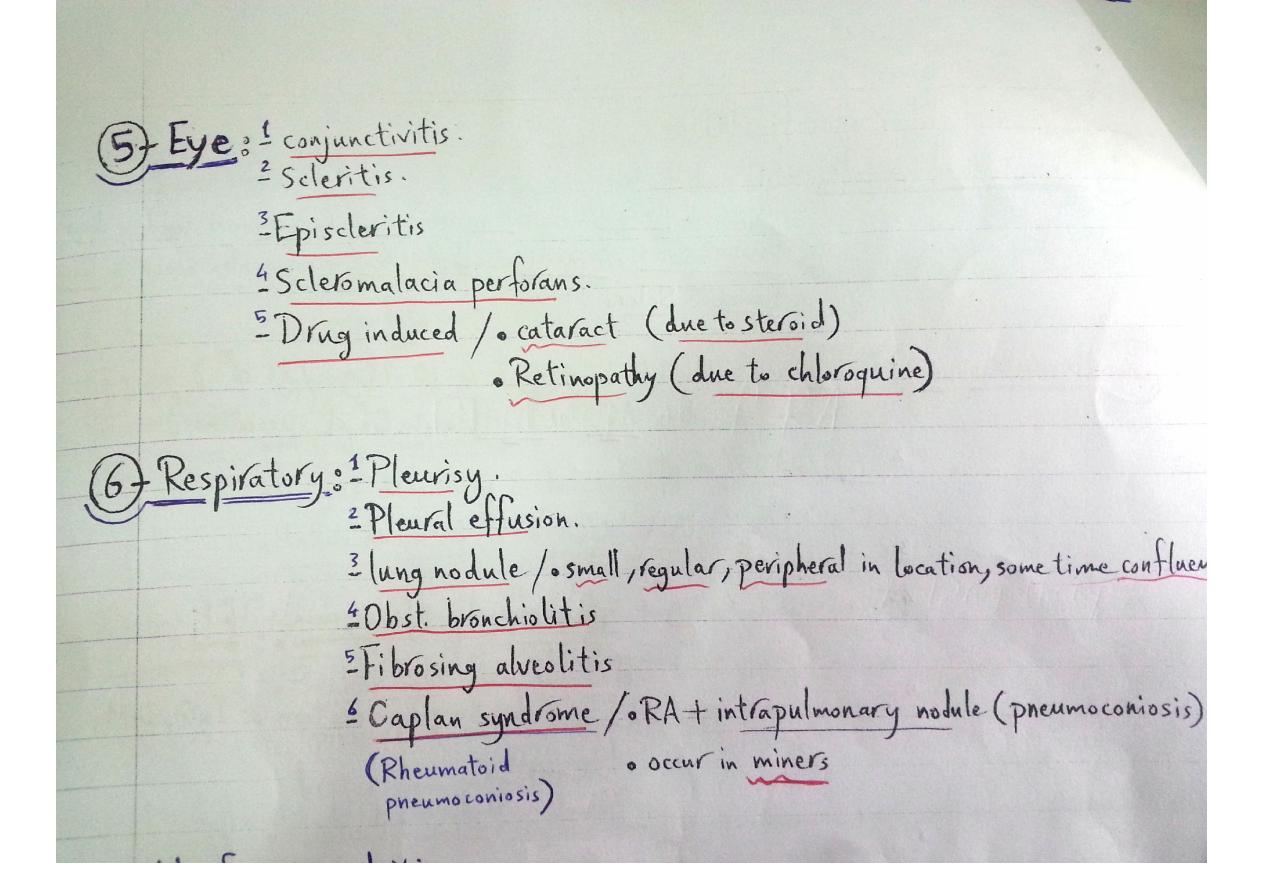 5- Eye: 1- conjunctivitis.
2- Scleritis.
3- Episcleritis
4- Scleromalacia perforans.
5- Drug induced / • cataract (due to steroid)
• Retinopathy (due to chloroquine)
6- Respiratory: 1- Pleurisy.
2- Pleural effusion.
3- lung nodule / • small, regular, peripheral in location, some time confluen
4- Obst. bronchiolitis
5- Fibrosing alveolitis
6- Caplan syndrome / • RA + intrapulmonary nodule (pneumoconiosis)
(Rheumatoid • occur in miners
pneumoconiosis)